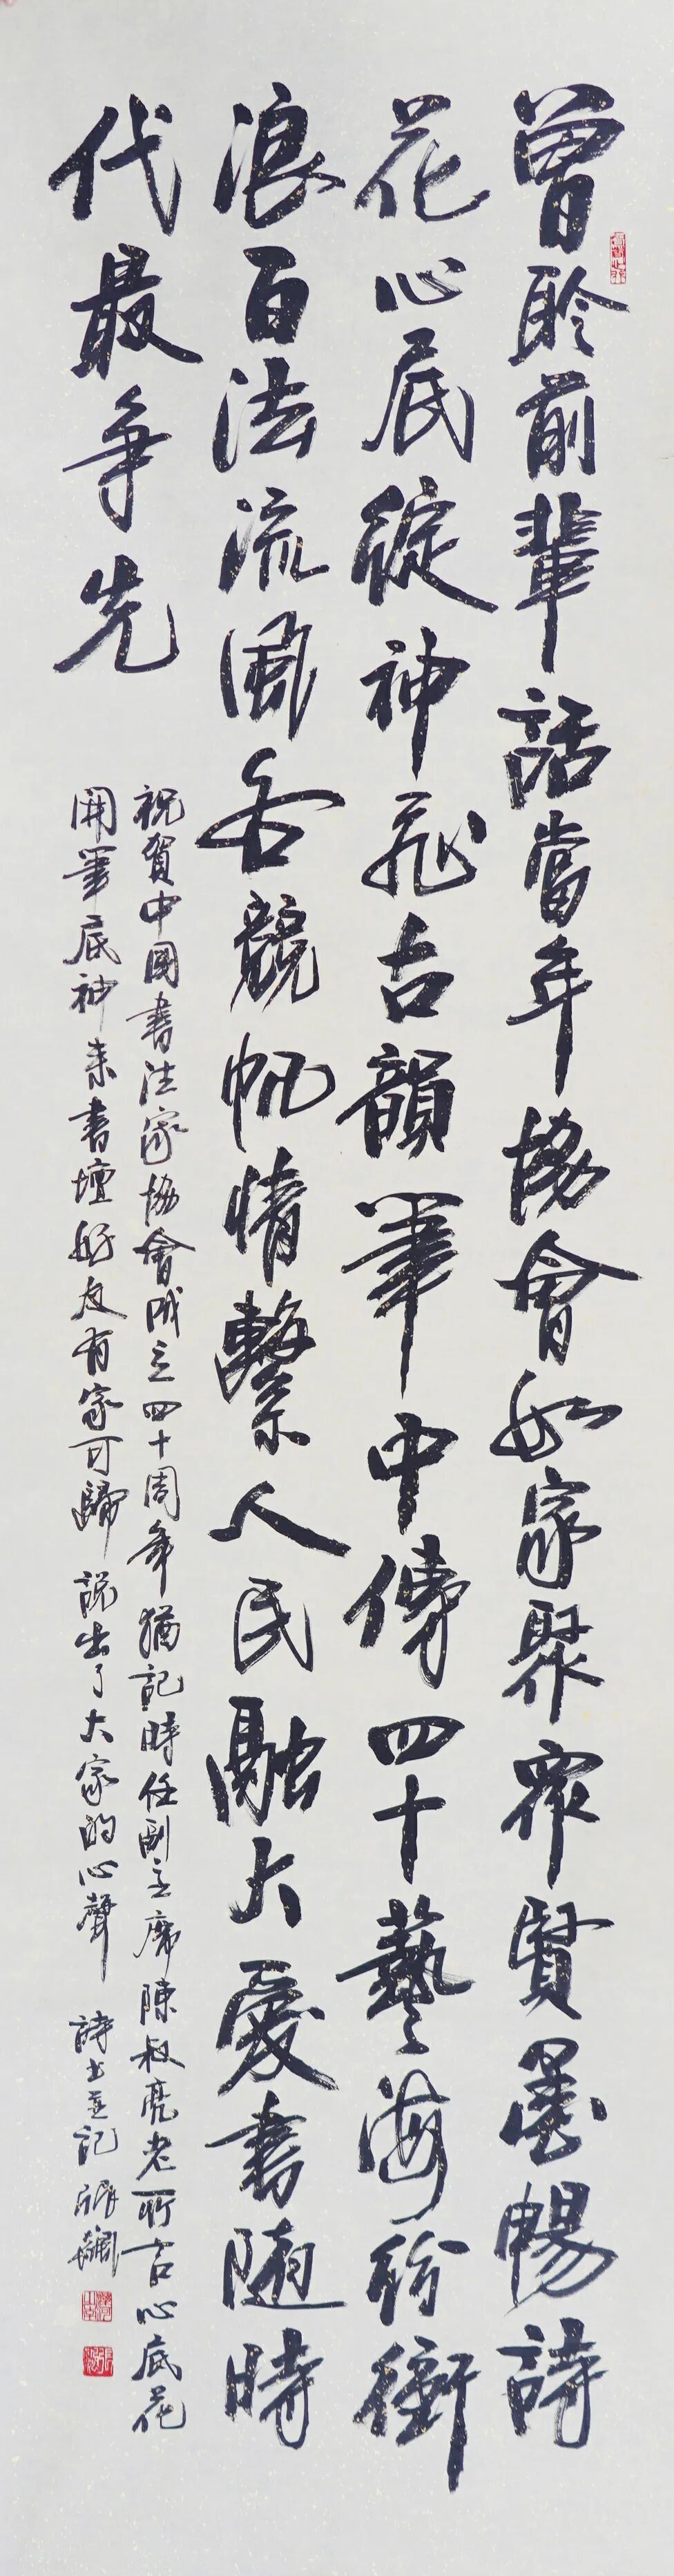 曾聆前輩話當年協會如家聚眾賢墨暢詩
花心底綻神飛古韻筆中傳四十藝海紛衝
浪百法流風各競帆情繫人民融大愛書隨時
代最爭先
祝賀中國書法家協會成立四十周年猶記時任副主席陳叔亮老所言心底花
開筆底神來書壇好友有家可歸說出了大家的心聲 詩書並記